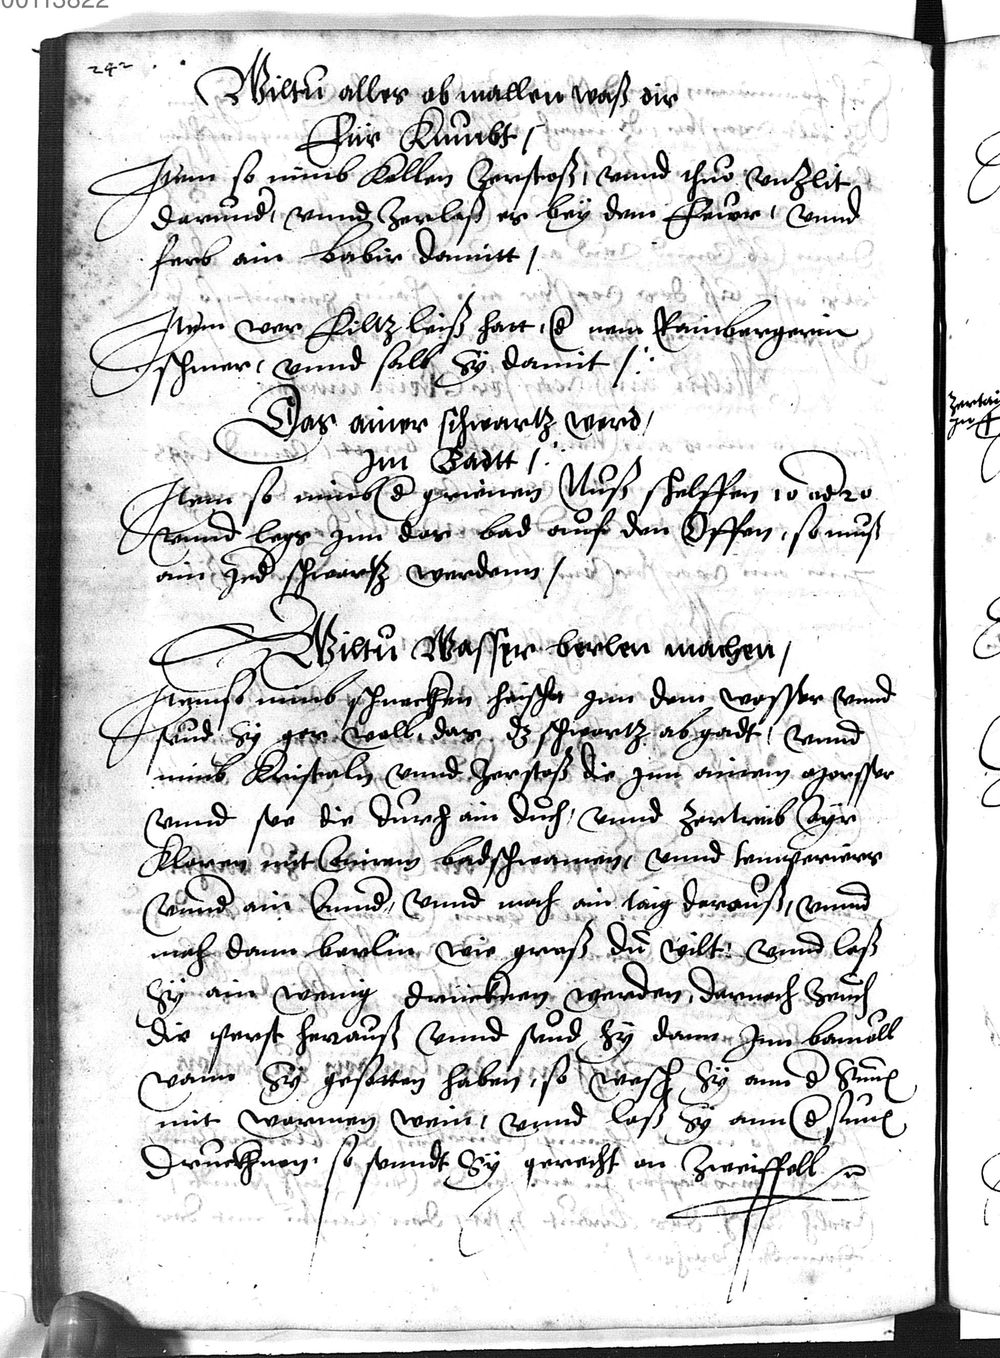 00113822
242
Wiltu alles ab mallen waß dir
Für Kumbt /
Item so nimb Kollen Zerstoß, vnnd thuo vnzlit
darund, vnnd zerlaß es bey dem Feüer, vnnd
ferb ain babir damitt /
Item wer Filtz leiß hatt, nem
schmer, vnnd salb Sy damit /
Das ainer schwartz werd,
Im Badtt /
Item so nimb d grienen Nuß schelffen 10 od 20
vnnd legs Inn das bad auf den Offen, so muß
ain Jed schwartz werdenn /
Wiltu Wasser berlen machen,
nimb schnecken heischen Inn dem wasser vnnd
seud Sy gar woll, das dz schwartz ab gadt, vnnd
nimb Kristaln vnnd Zerstoß die Inn ainem morsser
vnnd see die durch ain duch, vnnd zertreib Ayr
Klaren mit ainem badschwamen, vnnd temperiers
vnnd ain, vnnd mach ain taig darauß, vnnd
mach dann berlin wie groß du wilt, vnnd laß
Sy ain wenig drucknen werden, darnach Zeuch
die herauß vnnd seud Sy dann Inn bamöll
wann Sy gesotten haben, so wesch Sy ann d Sunn
mit warmen wein, vnnd laß Sy ann d sunn
drucknen, so sinndt Sy gerecht on Zweiffell